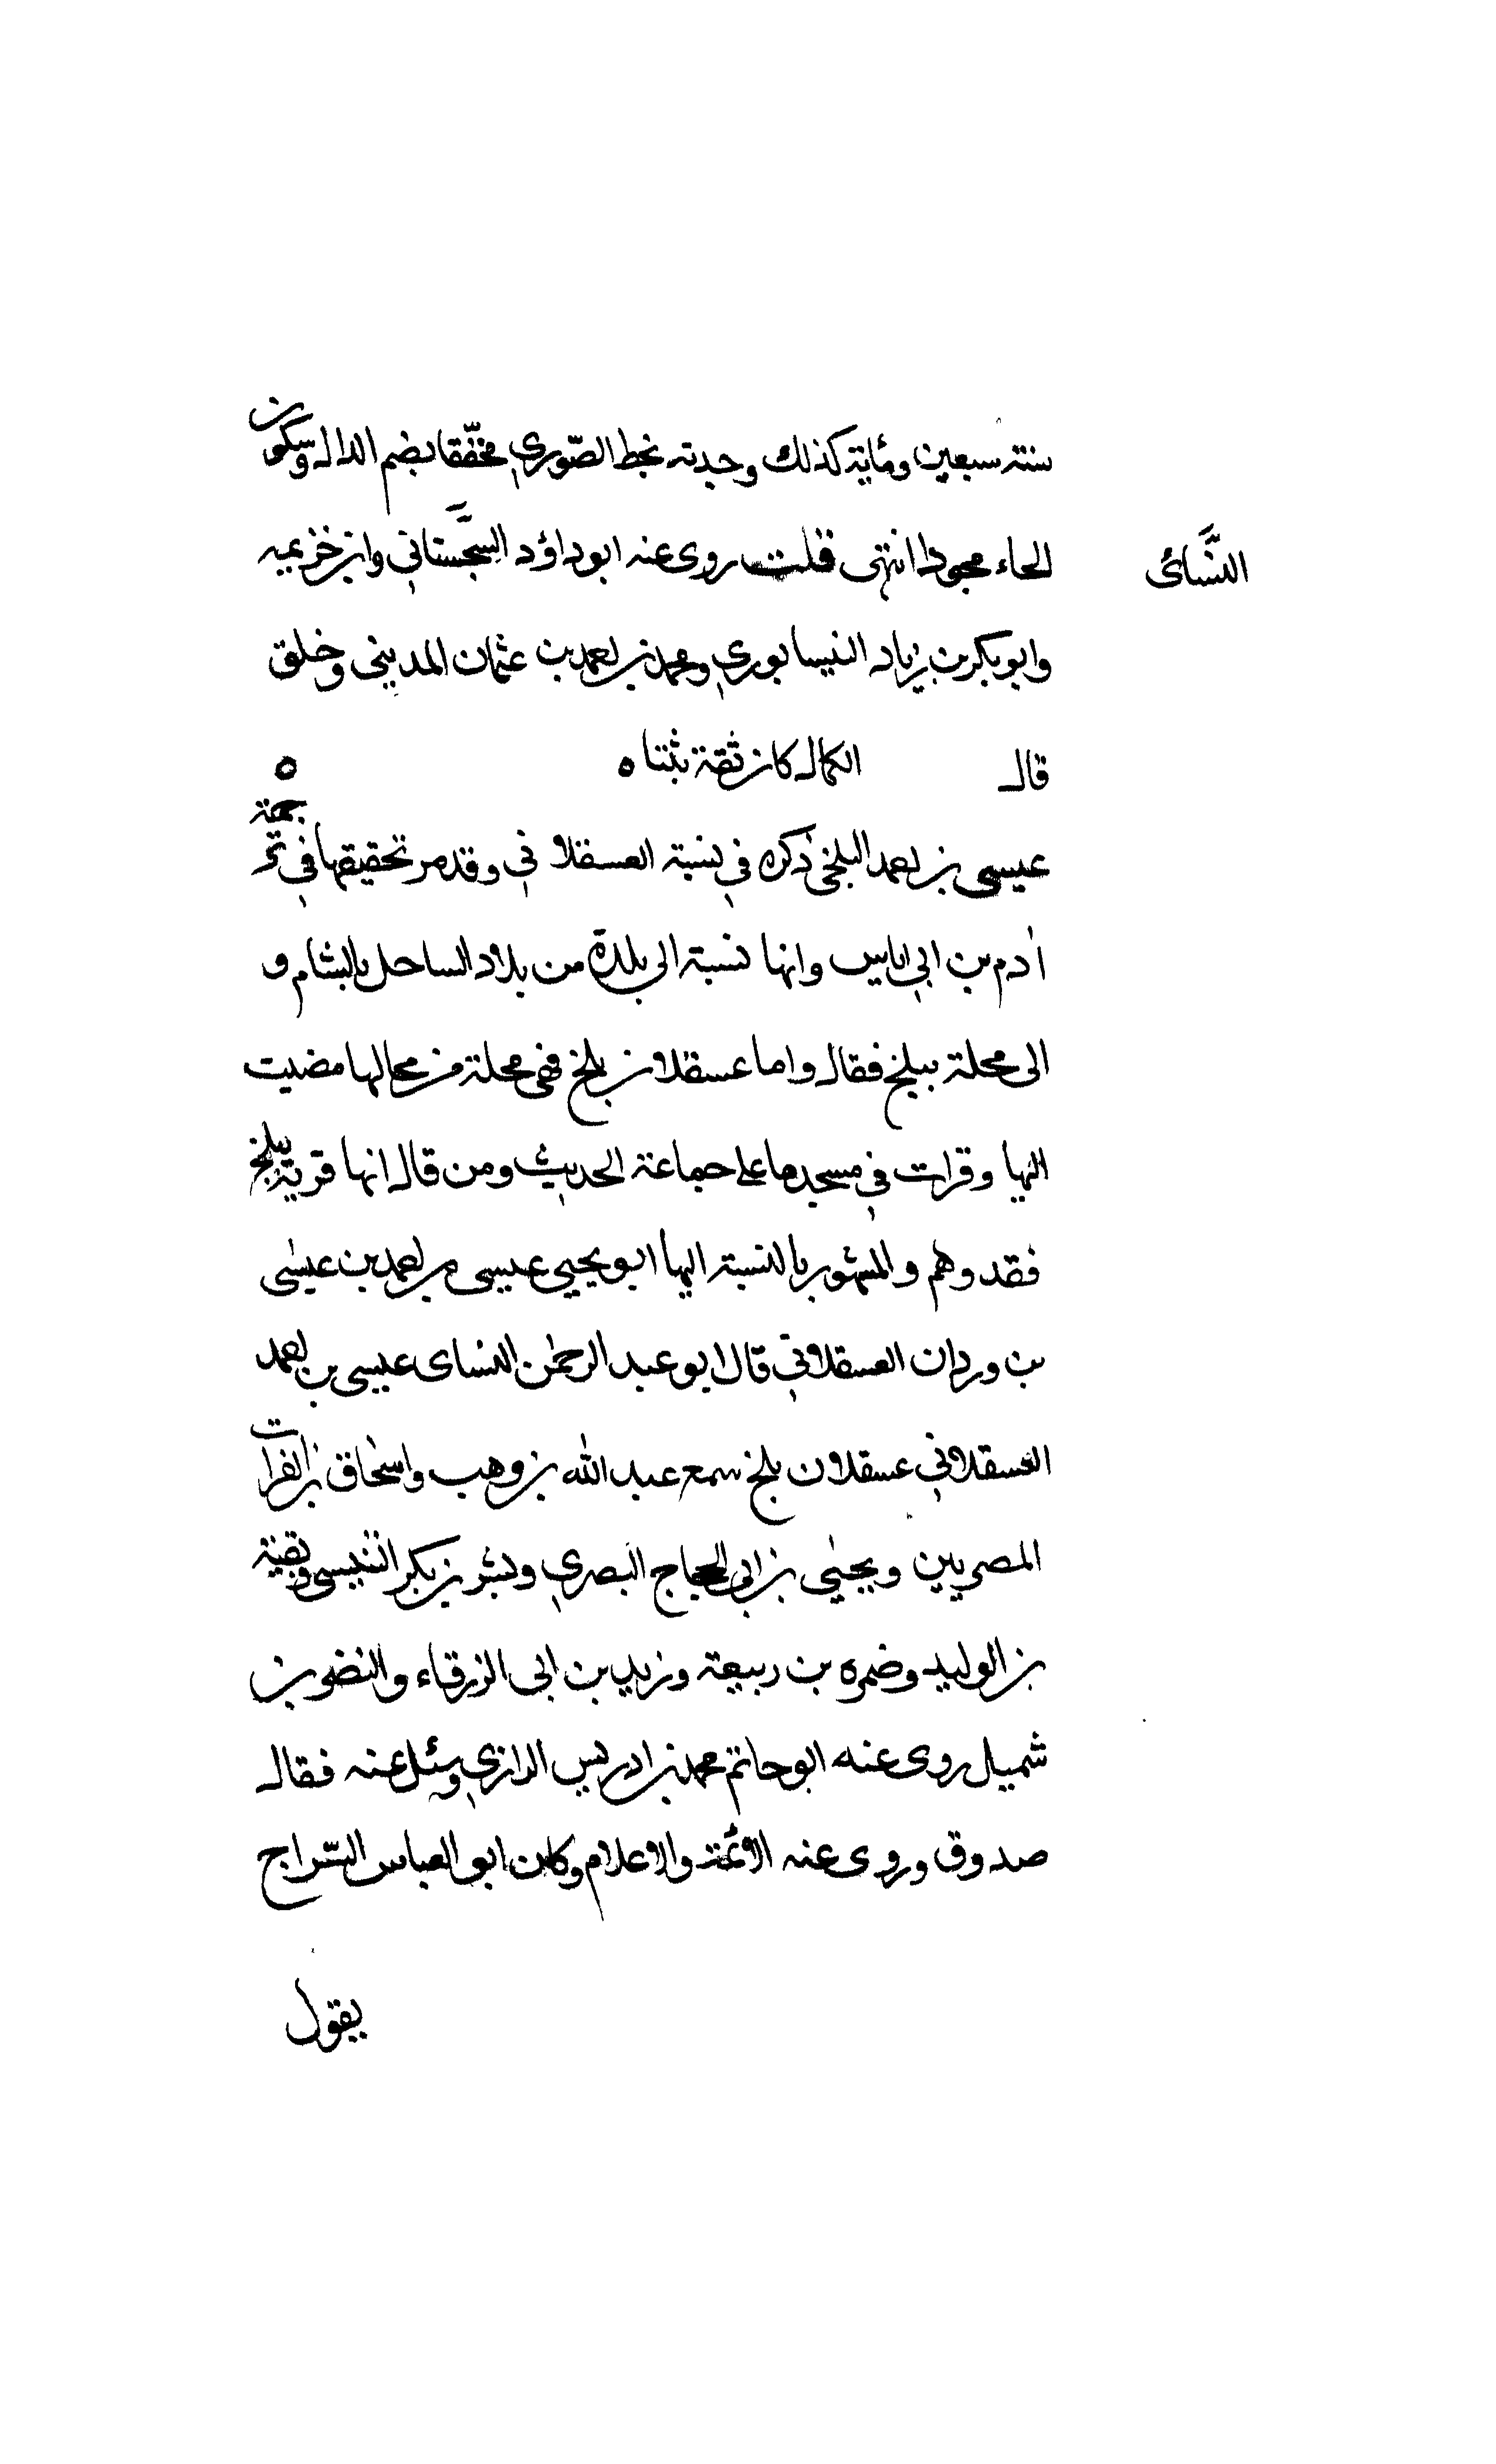 سنة سبعين ومائة كذلك وجدته بخط الصّوري مخفّفا بضم الدال وسكون
الحاء مجودا انتهى قلت روى عنه ابو داؤد السجستاني وابن خزيمه
النَّسَائى
وابو بكر بن زياد النيسابوري ومحمد بن احمد بن عثمان المديني وخلق
قال الكمال كان ثقة ثبتا ه ه
عيسى بن احمد البلخي ذكره في نسبة العسقلاني وقد مر تحقيقها في ترجمة
أدم بن ابي اياس وانها نسبة الى بلدة من بلاد الساحل بالشام و
الى محلة ببلخ فقال واما عسقلان بلخ فهى محلة من محالها مضيت
اليها وقرات في مسجدها على جماعة الحديث ومن قال انها قرية ببلخ
فقد وهم والمشهور بالنسبة اليها ابو يحيى عيسى بن احمد بن عيسى
بن وردان العسقلاني قال ابو عبد الرحمن النساى عيسى بن احمد
العسقلاني عسقلان بلخ سمع عبد الله بن وهب واسحاق بن الفرات
المصريين ويحيى بن ابي الحجاج البصري وبشر بن بكر التنيسي وبقية
بن الوليد وضمره بن ربيعة وزيد بن ابى الزرقاء والنضر بن
شميل روى عنه ابو حاتم محمد بن ادريس الرازي وسئل عنه فقال
صدوق وروى عنه الائمة والاعلام وكان ابو العباس السّراج
يقول